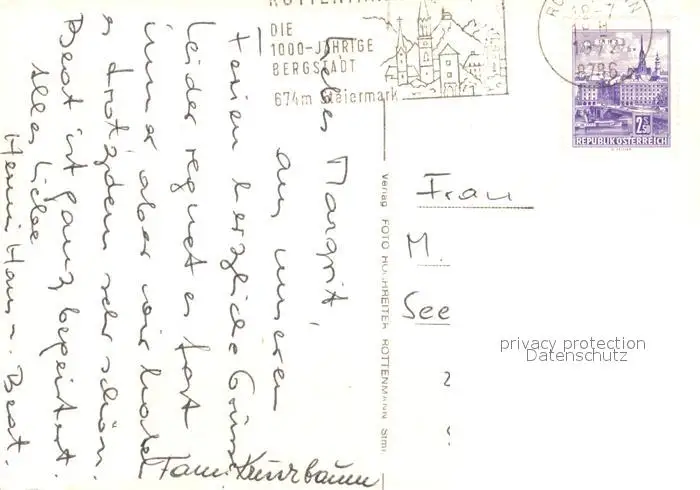 ROTTENMANN
DIE
1000-JÄHRIGE
BERGSTADT
674m Steiermark
18-7
1972
8786
2S50
REPUBLIK ÖSTERREICH
Liebes Margrit,
aus unseren
Ferien herzliche Grüsse
Leider regnet es fast
immer aber wir haben
es trotzdem sehr schön.
Beat ist ganz begeistert.
Alles Liebe
Henni Hans u. Beat.
Fam. Kunzbaum
Verlag FOTO HOCHREITER ROTTENMANN Stmk.
Frau
M.
See
2
privacy protection
Datenschutz